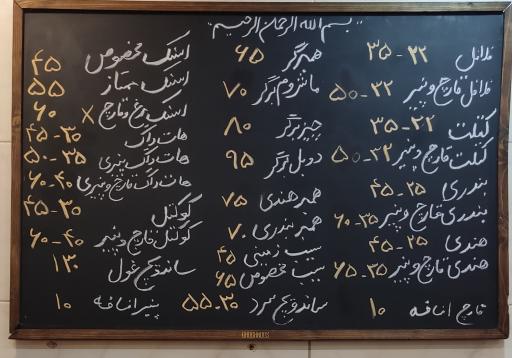 بسم الله الرحمن الرحیم
فلافل ۲۲-۳۵
فلافل قارچ و پنیر ۳۲-۵۰
کتلت ۲۲-۳۵
کتلت قارچ و پنیر ۳۲-۵۰
بندری ۲۵-۴۵
بندری قارچ و پنیر ۳۵-۶۰
هندی ۲۵-۴۵
هندی قارچ و پنیر ۳۵-۶۵
قارچ اضافه ۱۰
همبرگر ۶۵
ماشروم برگر ۷۰
چیزبرگر ۸۰
دوبل برگر ۹۵
همبر هندی ۷۵
همبر بندری ۷۰
سیب زمینی ۴۵
سیب مخصوص ۶۵
ساندویچ سرد ۳۰-۵۵
اسنک مخصوص ۴۵
اسنک ممتاز ۵۵
اسنک مرغ و قارچ X ۶۰
هات داگ ۳۰-۴۵
هات داگ پنیری ۳۵-۵۰
هات داگ قارچ و پنیری ۴۰-۶۰
کوکتل ۳۰-۴۵
کوکتل قارچ و پنیر ۴۰-۶۰
ساندویچ غول ۱۳۰
پنیر اضافه ۱۰